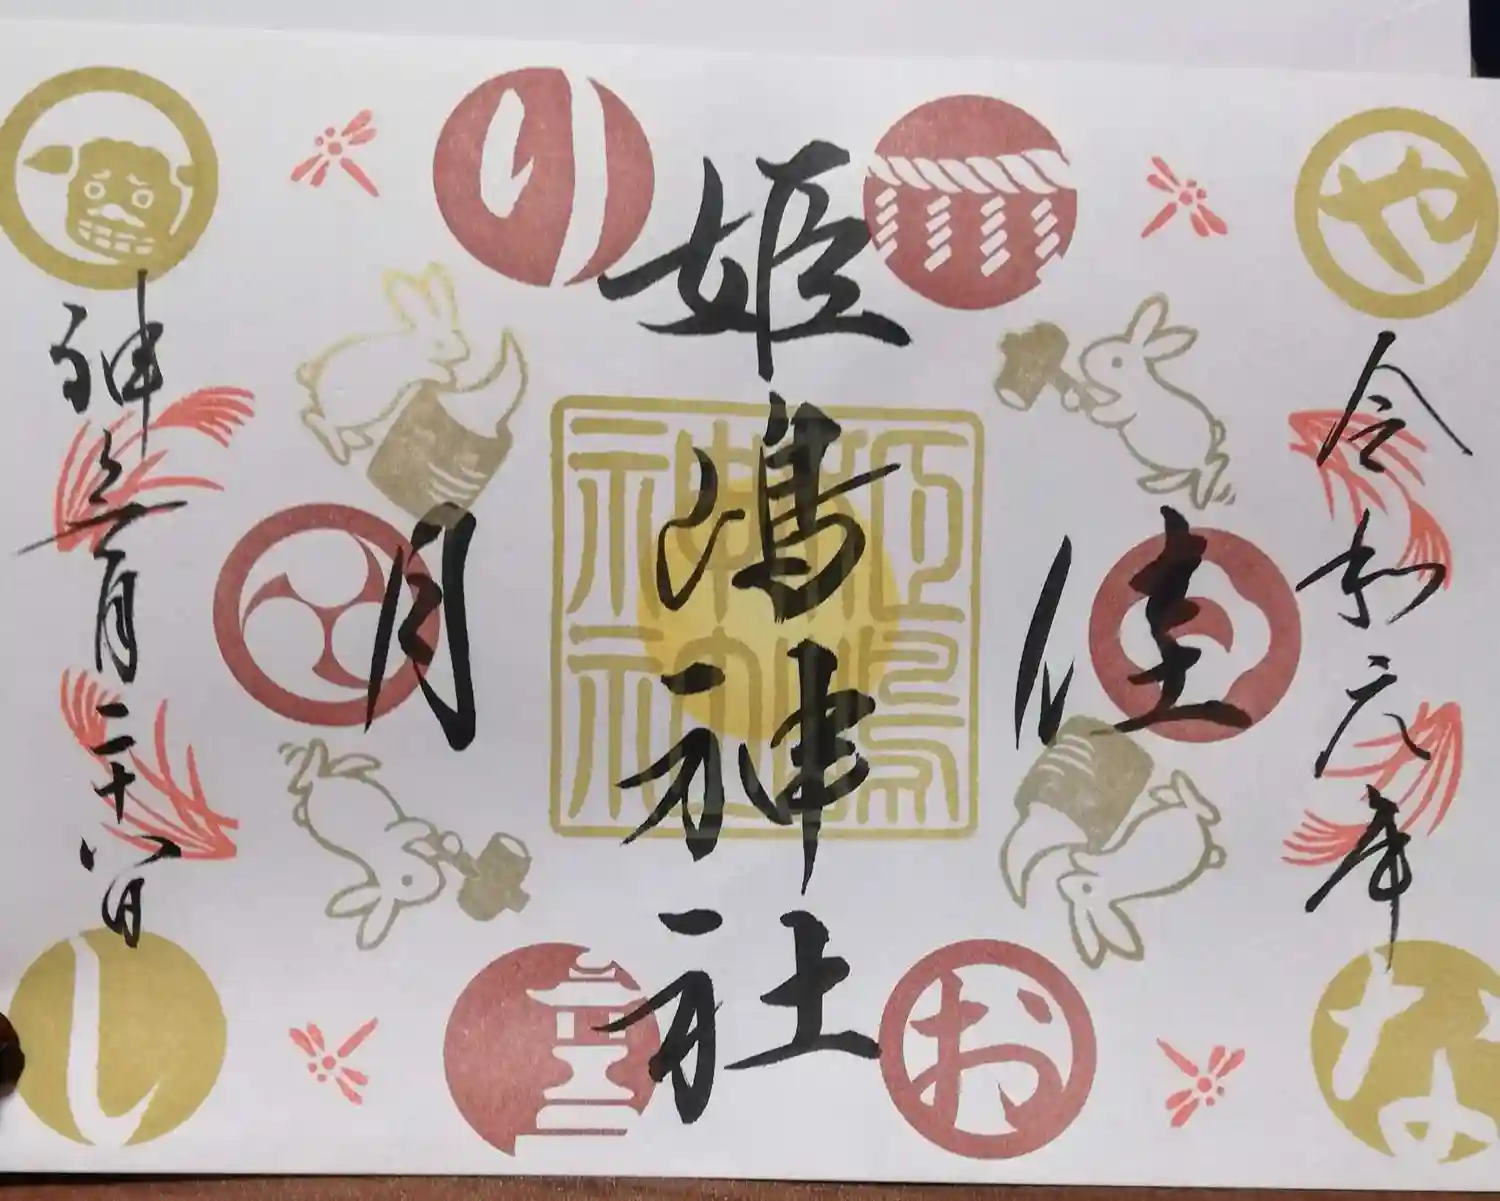 や
り
な
お
し
令和元年
佳月
姫嶋神社
姫嶋
神社
神無月二十八日